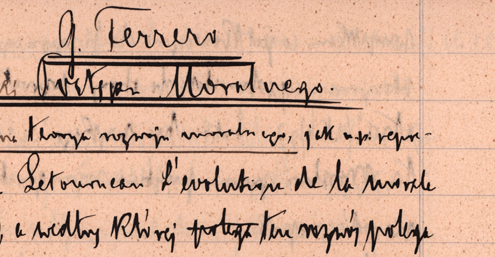 G. Ferrero
Postępu Moralnego.
rozwoju moralnego, jak np. repre-
Letourneau L'evolution de la morale
, a według której polega ten rozwój polega